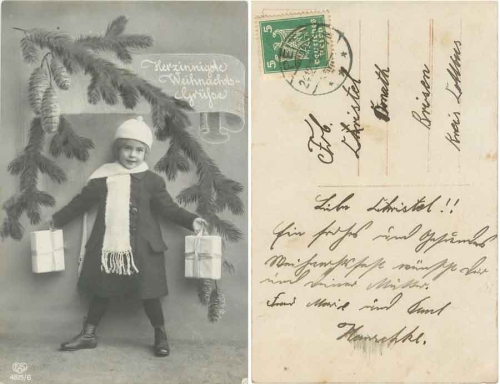 Herzinnigste
Weihnachts-
Grüße
5 5
DEUTSCHES
REICH
Frl.
Christel
Briesen
Kreis Cottbus
Liebe Christel!!
Ein frohes und gesundes
Weihnachtsfest wünscht Dir
und Deiner Mutter.
Frau Marie und Paul